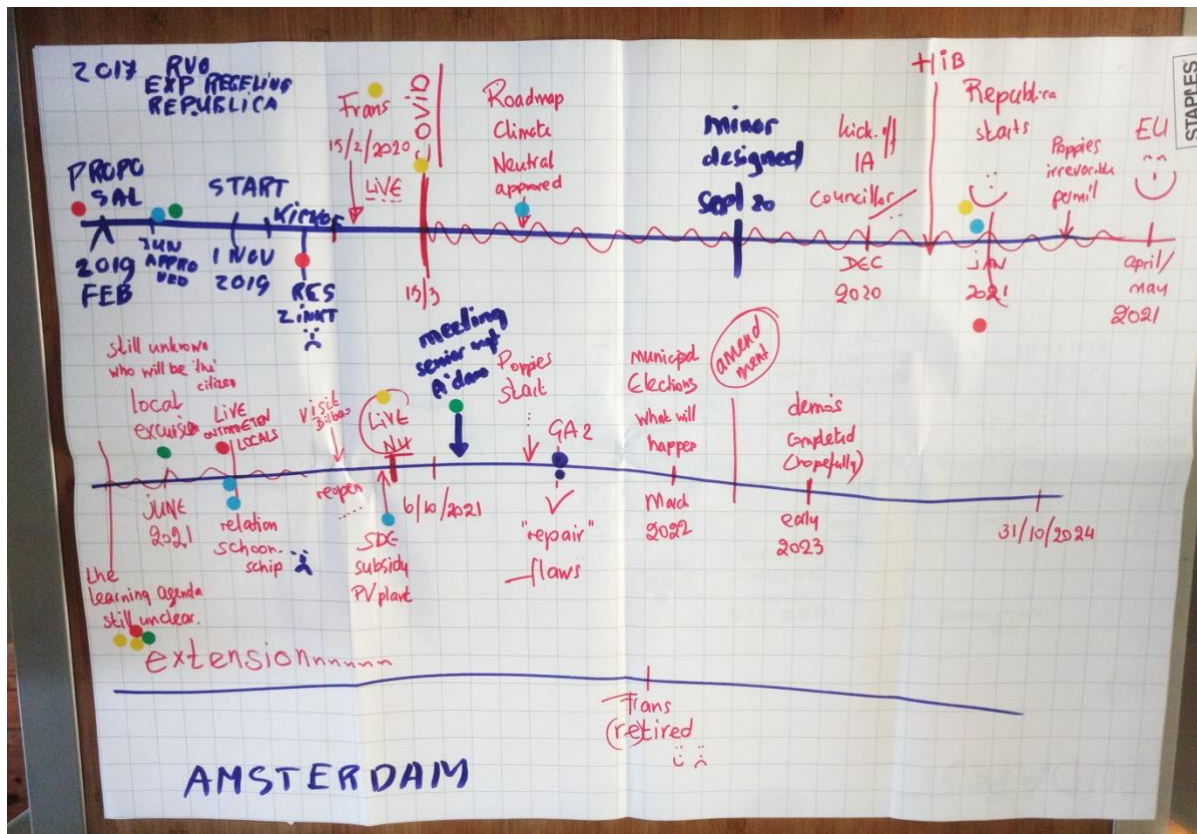 2017 RVO
EXP REGELING
REPUBLICA
PROPO
SAL
2019
FEB
JUN
APPRO
VED
START
1 NOV
2019
KICKOF
RES
ZINKT
Frans
15/2/2020
LIVE
COVID
15/3
Roadmap
Climate
Neutral
approved
minor
designed
Sept 20
kick.off
IA
Councillor
DEC
2020
HiB
Republica
starts
JAN
2021
Poppies
irrevocible
permit
EU
april/
may
2021
STAPLES
still unknown
who will be 'the'
citizen
local
excursion
JUNE
2021
LIVE
LOCALS
relation
schoon-
schip
the
learning agenda
still unclear.
visit
Bilbao
reopen
LIVE
NH
SDE
subsidy
PV plant
6/10/2021
meeting
senior mgt
A'dam
Poppies
start
GA2
"repair"
flaws
Municipal
Elections
what will
happen
March
2022
amend
ment
demo's
completed
(hopefully)
early
2023
31/10/2024
extensionnnnnn
Frans
(re)tired
AMSTERDAM